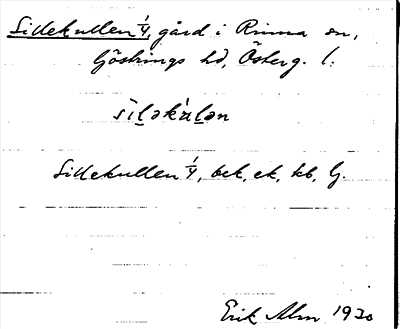 Sillekullen 1/4, gård i Rinna sn,
Göstrings hd, Österg. l.
sìləkùlən
Sillekullen 1/4, bek, ek, kb, G.
Erik Alm 1930